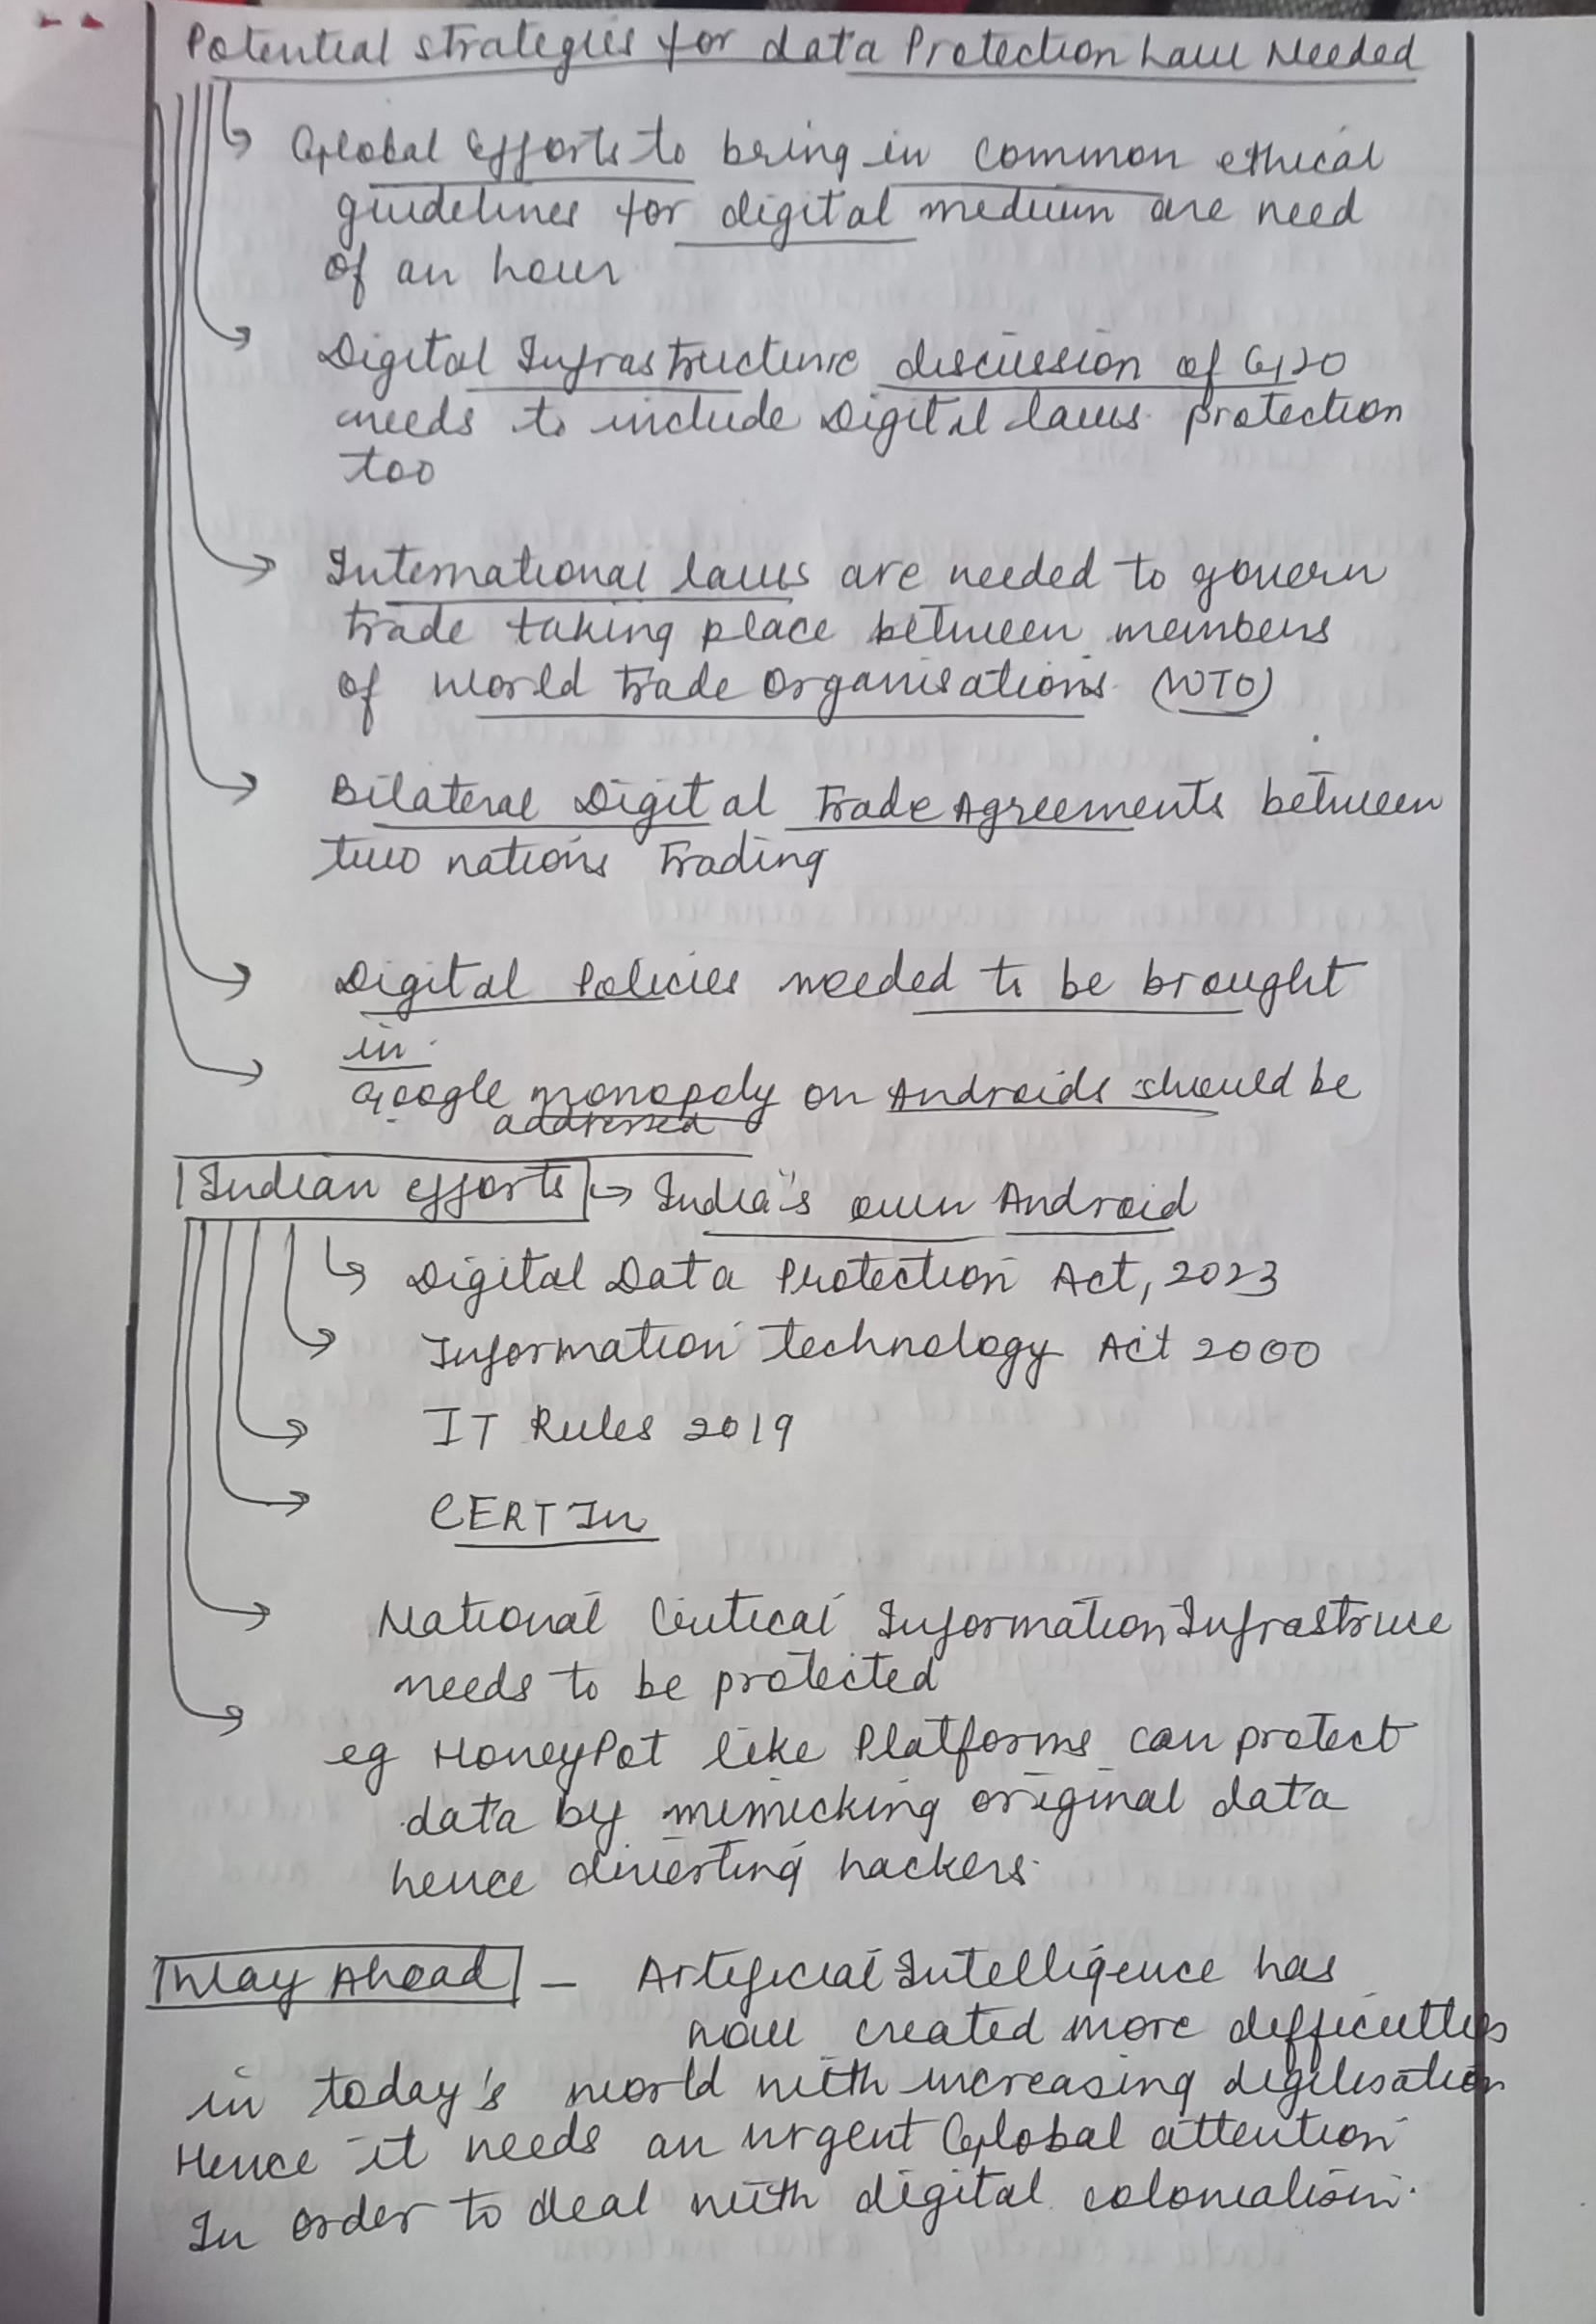 Potential strategies for data Protection Law Needed
Global Efforts to bring in common ethical
guidelines for digital medium are need
of an hour
Digital Infrastructure discussion of G20
needs to include Digital laws protection
too
International laws are needed to govern
trade taking place between members
of World Trade Organisations (WTO)
Bilateral Digital Trade Agreements between
two nations Trading
Digital Policies needed to be brought
in
Google monopoly on Androids should be
addressed
Indian efforts → India's own Android
Digital Data Protection Act, 2023
Information technology Act 2000
IT Rules 2019
CERT In
National Critical Information Infrastruce
needs to be protected
eg HoneyPot like Platforms can protect
data by mimicking original data
hence diverting hackers.
Way Ahead - Artificial Intelligence has
now created more difficulties
in today's world with increasing digitisation
Hence it needs an urgent Global attention
In order to deal with digital colonialism.